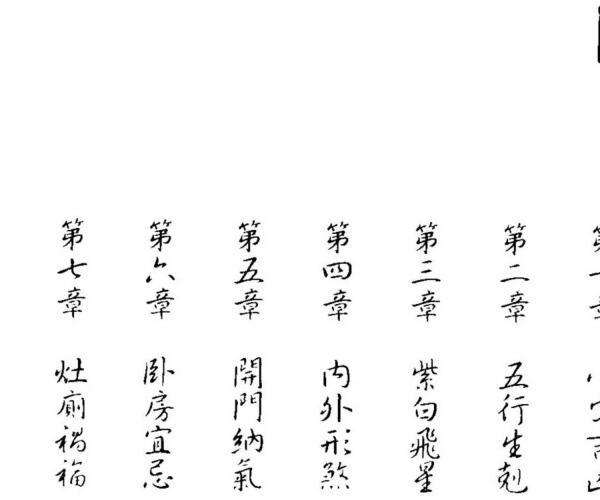 第二章 五行生剋
第三章 紫白飛星
第四章 內外形煞
第五章 開門納氣
第六章 臥房宜忌
第七章 灶廁禍福